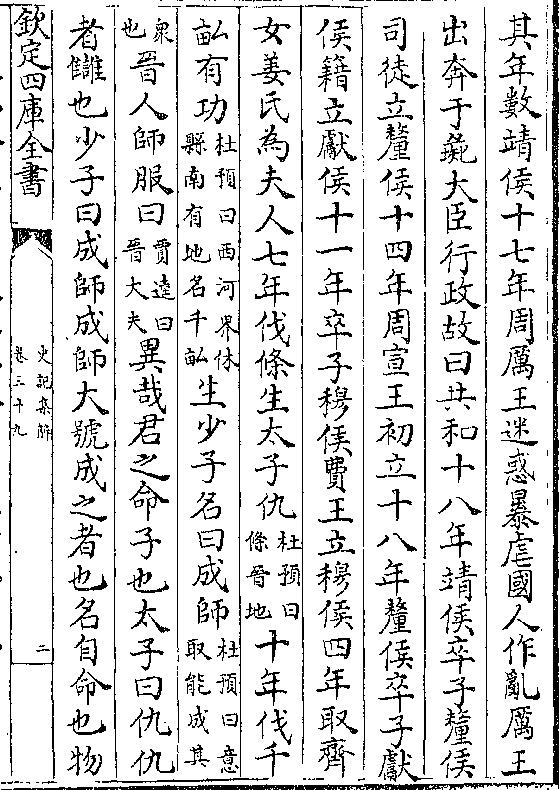 其年數靖侯十七年周厲王迷惑暴虐國人作亂厲王
出奔于彘大臣行政故曰共和十八年靖侯卒子釐侯
司徒立釐侯十四年周宣王初立十八年釐侯卒子獻
侯籍立獻侯十一年卒子穆侯費王立穆侯四年取齊
女姜氏為夫人七年伐條生太子仇杜預曰條晉地十年伐千
畝有功杜預曰西河界休縣南有地名千畝生少子名曰成師杜預曰意取能成其
衆也晉人師服曰賈逵曰晉大夫異哉君之命子也太子曰仇仇
者讎也少子曰成師成師大號成之者也名自命也物
欽定四庫全書
史記集解
卷三十九
二